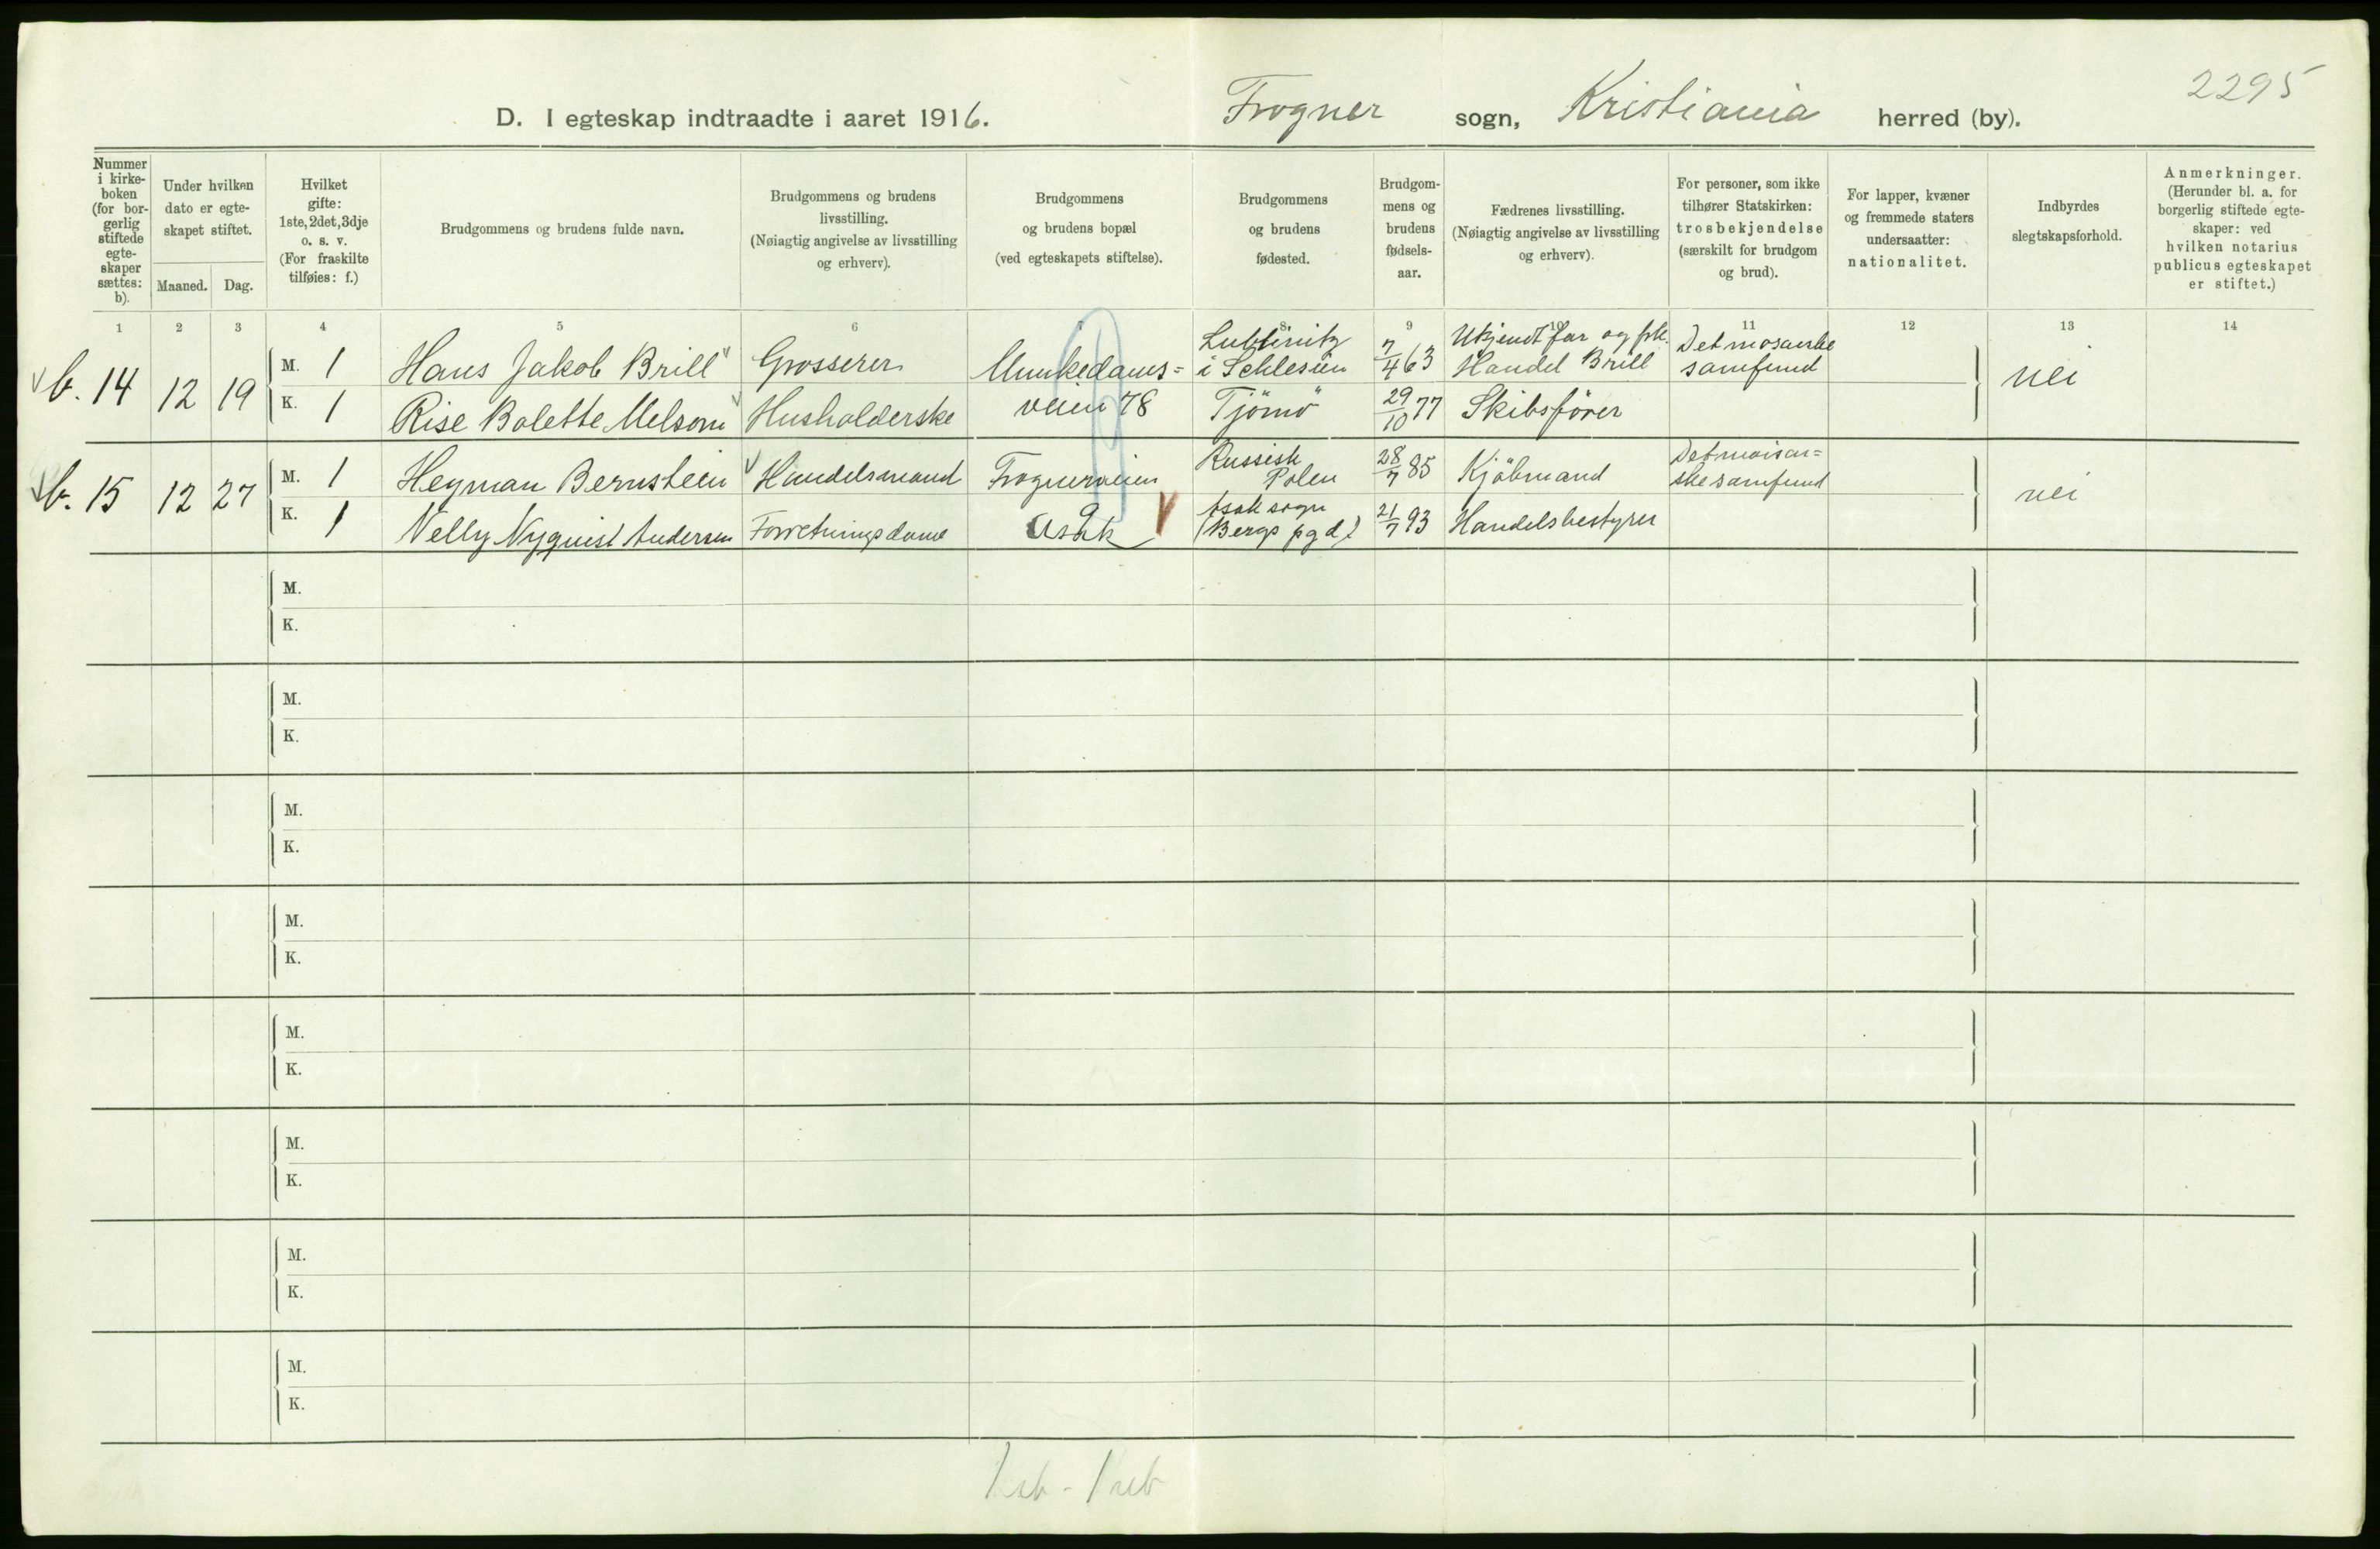 2295
D. I egteskap indtraadte i aaret 1916. Frogner sogn, Kristiania herred (by).
Nummer i kirke-boken (for bor-gerlig stiftede egte-skaper sættes: b).
Under hvilken dato er egte-skapet stiftet.
Maaned. Dag.
Hvilket gifte: 1ste, 2det, 3dje o. s. v. (For fraskilte tilføies: f.)
Brudgommens og brudens fulde navn.
Brudgommens og brudens livsstilling. (Nøiagtig angivelse av livsstilling og erhverv).
Brudgommens og brudens bopæl (ved egteskapets stiftelse).
Brudgommens og brudens fødested.
Brudgom-mens og brudens fødsels-aar.
Fædrenes livsstilling. (Nøiagtig angivelse av livsstilling og erhverv).
For personer, som ikke tilhører Statskirken: trosbekjendelse (særskilt for brudgom og brud).
For lapper, kvæner og fremmede staters undersaatter: nationalitet.
Indbyrdes slegtskapsforhold.
Anmerkninger. (Herunder bl. a. for borgerlig stiftede egte-skaper: ved hvilken notarius publicus egteskapet er stiftet.)
1 2 3 4 5 6 7 8 9 10 11 12 13 14
b. 14 12 19
M. 1 Hans Jakob Brill Grosserer Munkedams= Lublinitz i Schlesien 7/4 63 Ukjendt far og frk. Handel Brill Det mosaiske samfund nei
K. 1 Rise Bolette Melsom Husholderske veien 78 Tjömö 29/10 77 Skibsfører
b. 15 12 27
M. 1 Heyman Bernstein Handelsmand Frognerveien Russisk Polen 28/7 85 Kjöbmand Det mosai=ske samfund nei
K. 1 Nelly Nyquist Andersen Forretningsdame 9 Asak Asak sogn (Bergs pgd) 21/7 93 Handelsbestyrer
M.
K.
M.
K.
M.
K.
M.
K.
M.
K.
M.
K.
M.
K.
M.
K.